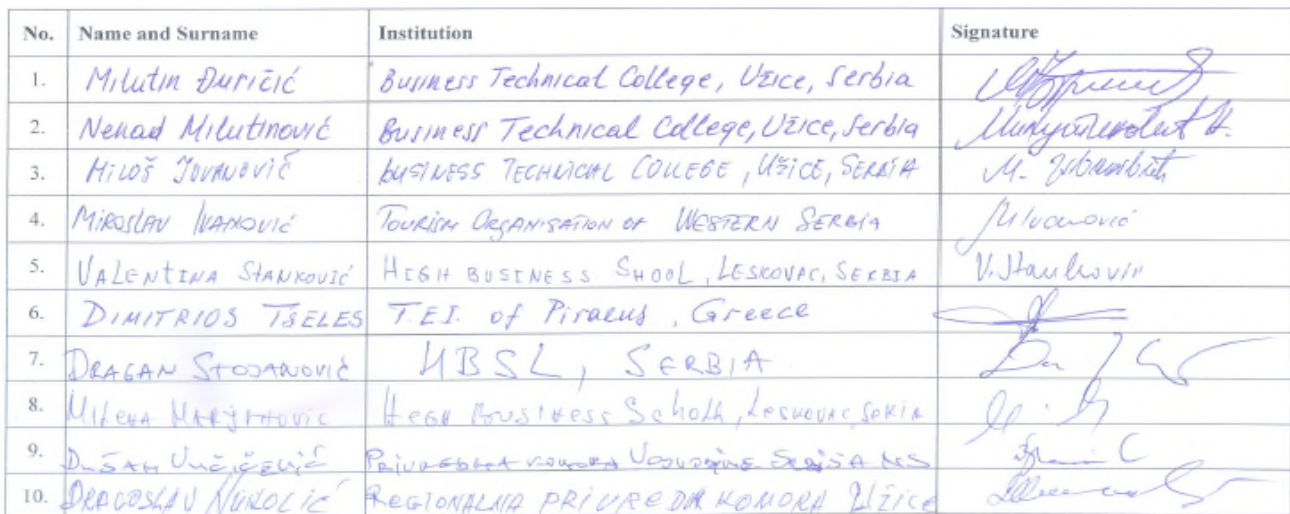 No. Name and Surname Institution Signature
1. Milutin Đuričić Business Technical College, Užice, Serbia
2. Nenad Milutinović Business Technical College, Užice, Serbia
3. Miloš Jovanović BUSINESS TECHNICAL COLLEGE, UŽICE, SERBIA
4. MIROSLAV IVANOVIĆ TOURISM ORGANISATION OF WESTERN SERBIA MIvanović
5. VALENTINA STANKOVIĆ HIGH BUSINESS SHOOL, LESKOVAC, SERBIA V. Stanković
6. DIMITRIOS TSELES T.E.I. of Piraeus, Greece
7. DRAGAN STOJANOVIĆ HBSL, SERBIA
8. MILENA MARJANOVIĆ HIGH BUSINESS
9. DUŠAN PRIVREDNA KOMORA
10. DRAGOSLAV NIKOLIĆ REGIONALNA PRIVREDNA KOMORA UŽICE